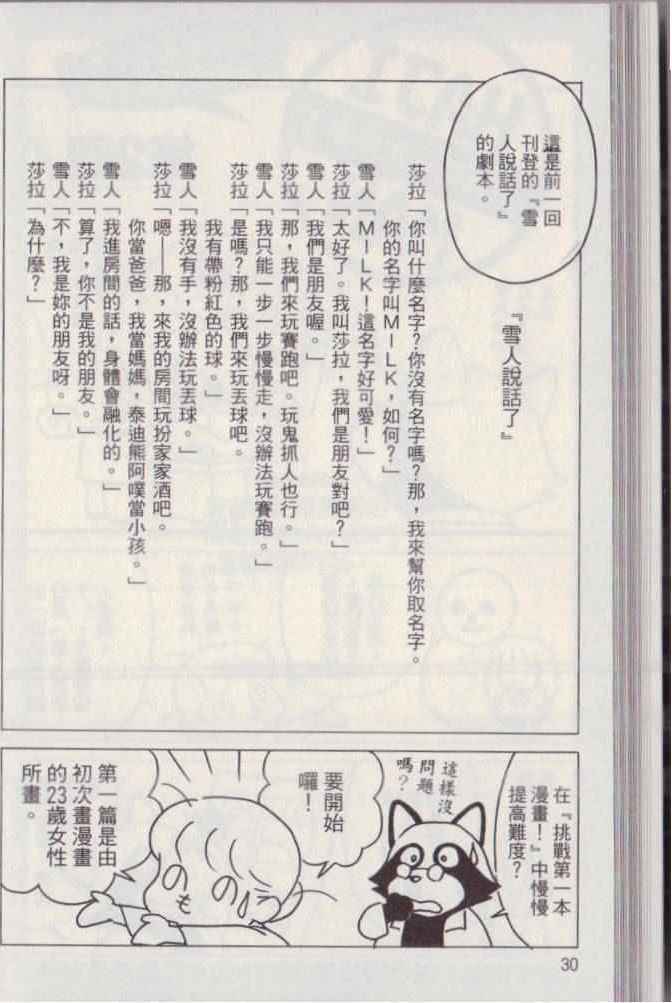 這是前一回
刊登的『雪
人說話了』
的劇本。
『雪人說話了』
莎拉「你叫什麼名字?你沒有名字嗎?那,我來幫你取名字。
你的名字叫MILK,如何?」
雪人「MILK!這名字好可愛!」
莎拉「太好了。我叫莎拉,我們是朋友對吧?」
雪人「我們是朋友喔。」
莎拉「那,我們來玩賽跑吧。玩鬼抓人也行。」
雪人「我只能一步一步慢慢走,沒辦法玩賽跑。」
莎拉「是嗎?那,我們來玩丟球吧。
我有帶粉紅色的球。」
雪人「我沒有手,沒辦法玩丟球。」
莎拉「嗯——那,來我的房間玩扮家家酒吧。
你當爸爸,我當媽媽,泰迪熊阿噗當小孩。」
雪人「我進房間的話,身體會融化的。」
莎拉「算了,你不是我的朋友。」
雪人「不,我是妳的朋友呀。」
莎拉「為什麼?」
在『挑戰第一本
漫畫!』中慢慢
提高難度?
這樣沒
問題
嗎?
要開始
囉!
第一篇是由
初次畫漫畫
的23歲女性
所畫。
30